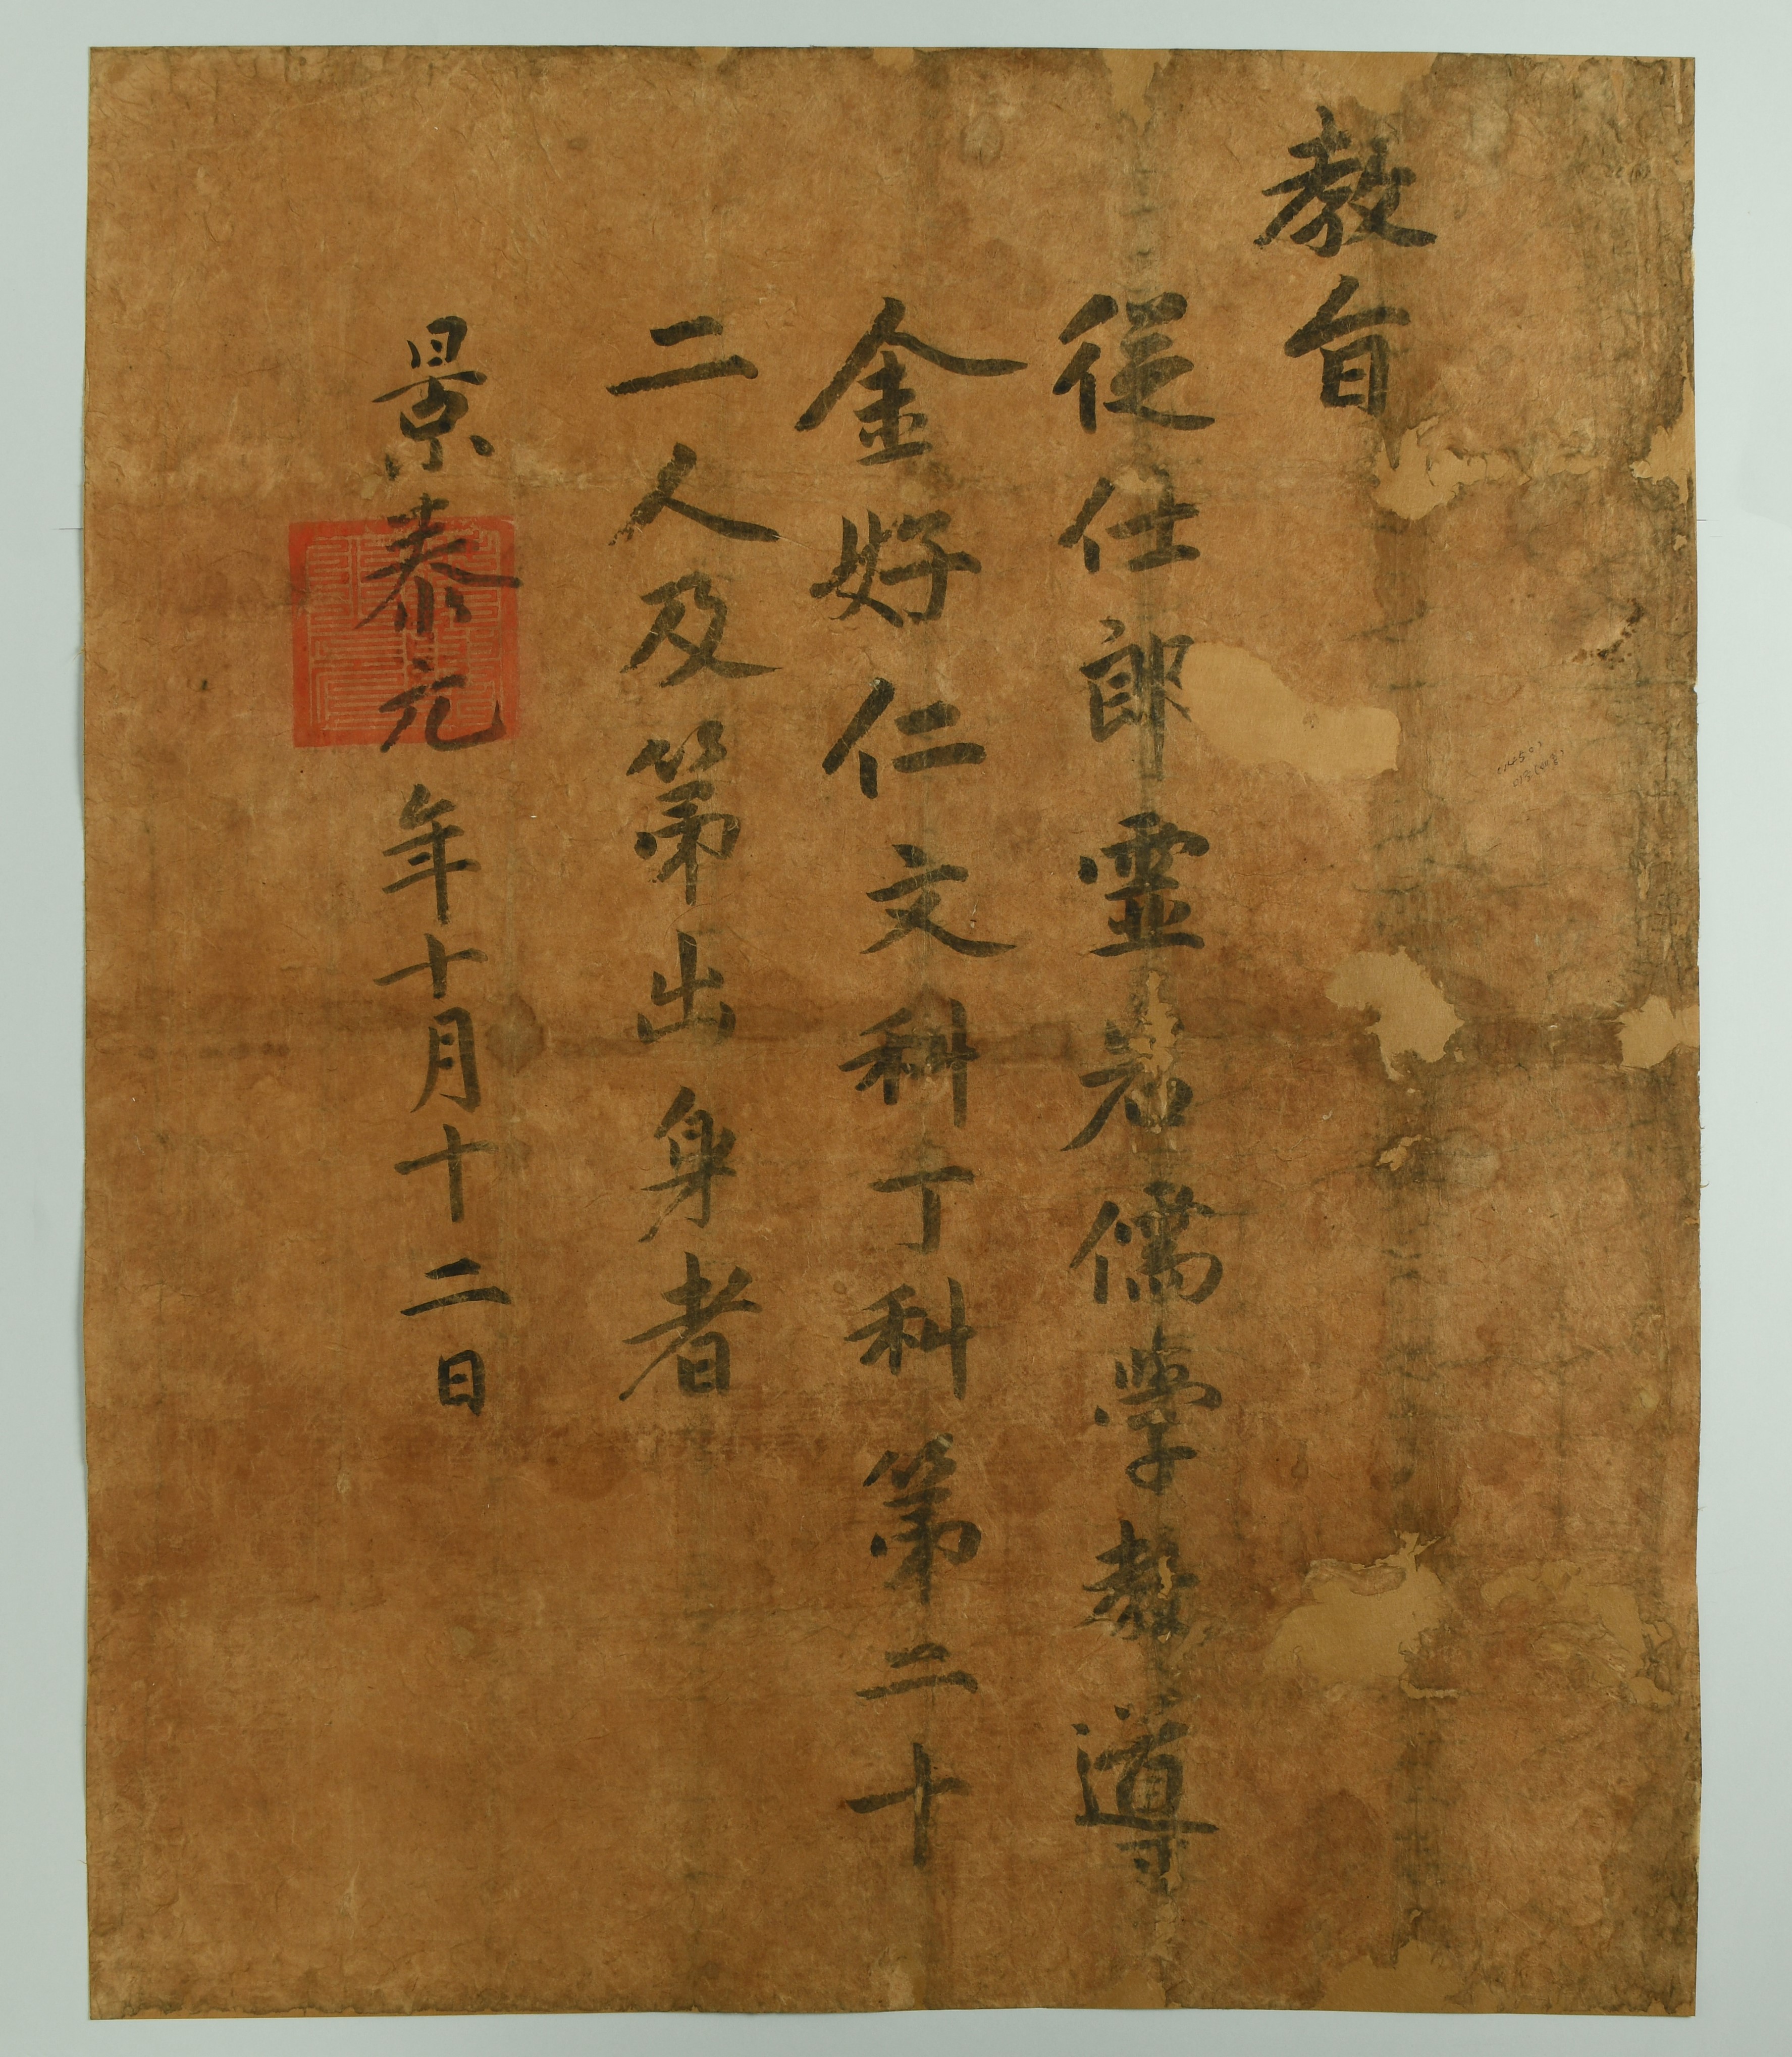 教旨
從仕郎靈岩儒學教導
金好仁文科丁科第二十
二人及第出身者
景泰元年十月十二日